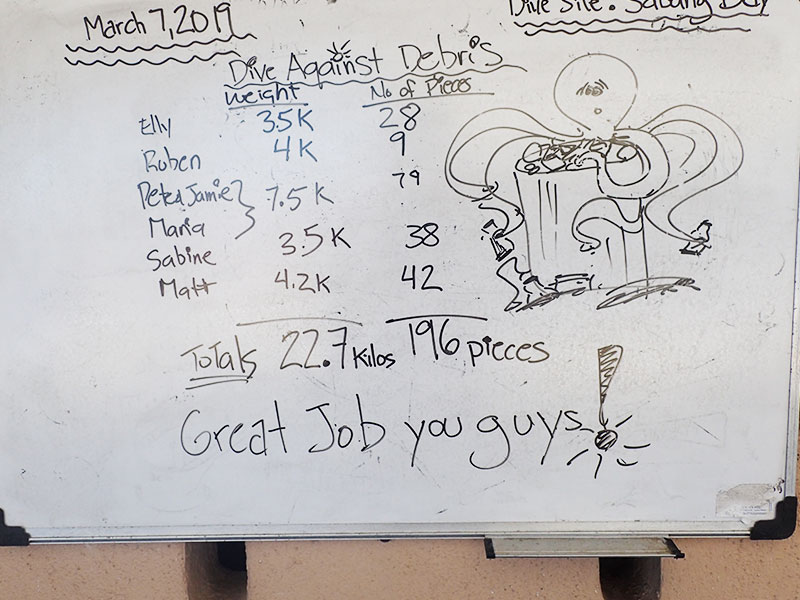 March 7, 2019
Dive Site: Sabang Bay
Dive Against Debris
Weight No of Pieces
Elly 3.5K 28
Ruben 4K 9
Pete & Jamie } 7.5K 79
Maria
Sabine 3.5K 38
Matt 4.2K 42
Totals 22.7 Kilos 196 pieces
Great Job you guys!